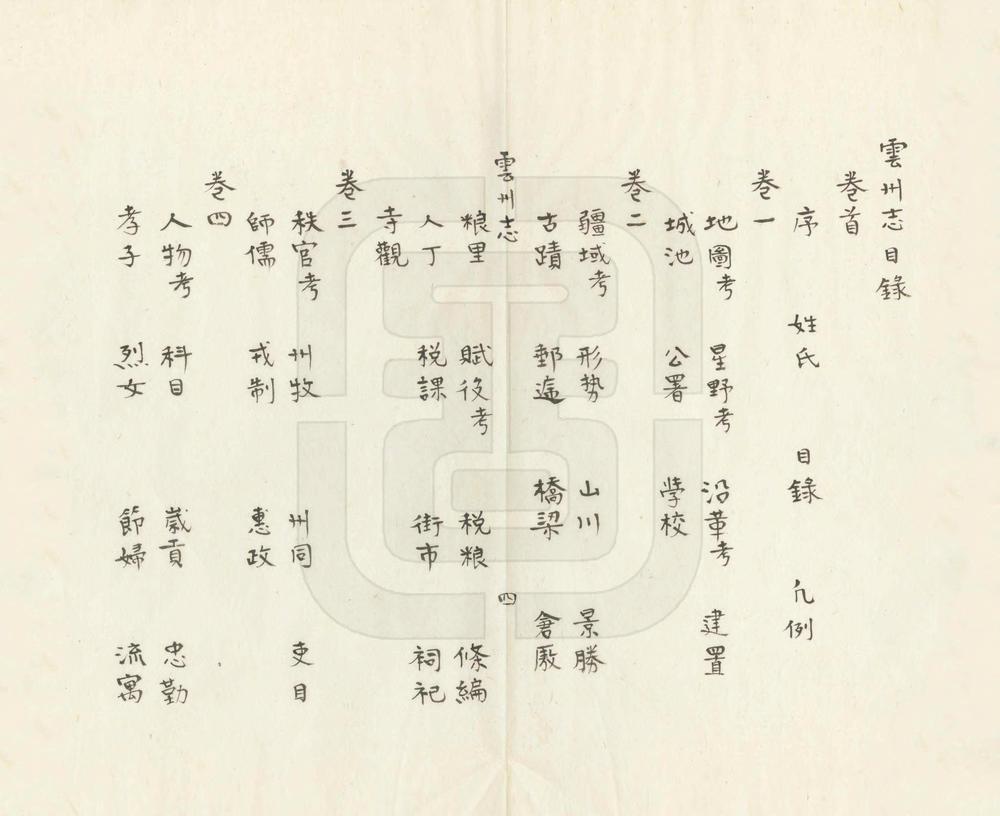 雲州志目錄
卷首
序 姓氏 目錄 凡例
卷一
地圖考 星野考 沿革考 建置
城池 公署 學校
卷二
疆域考 形势 山川 景勝
古蹟 郵遞 橋梁 倉厫
雲州志 四
粮里 賦役考 税粮 條編
人丁 税課 街市 祠祀
寺觀
卷三
秩官考 州牧 州同 吏目
師儒 戎制 惠政
卷四
人物考 科目 歲貢 忠勤
孝子 烈女 節婦 流寓